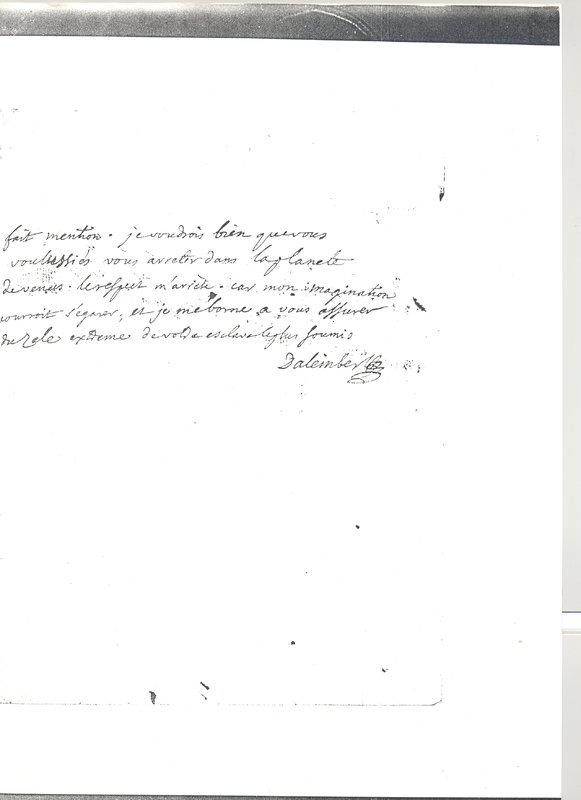 fait mention. je voudrois bien que vous
voulussiés vous arreter dans la planete
de venus. le respect m'arrète. car mon imagination
pourroit s'égarer, et je me borne a vous assurer
du zele extreme de votre esclave le plus soumis
Dalembert